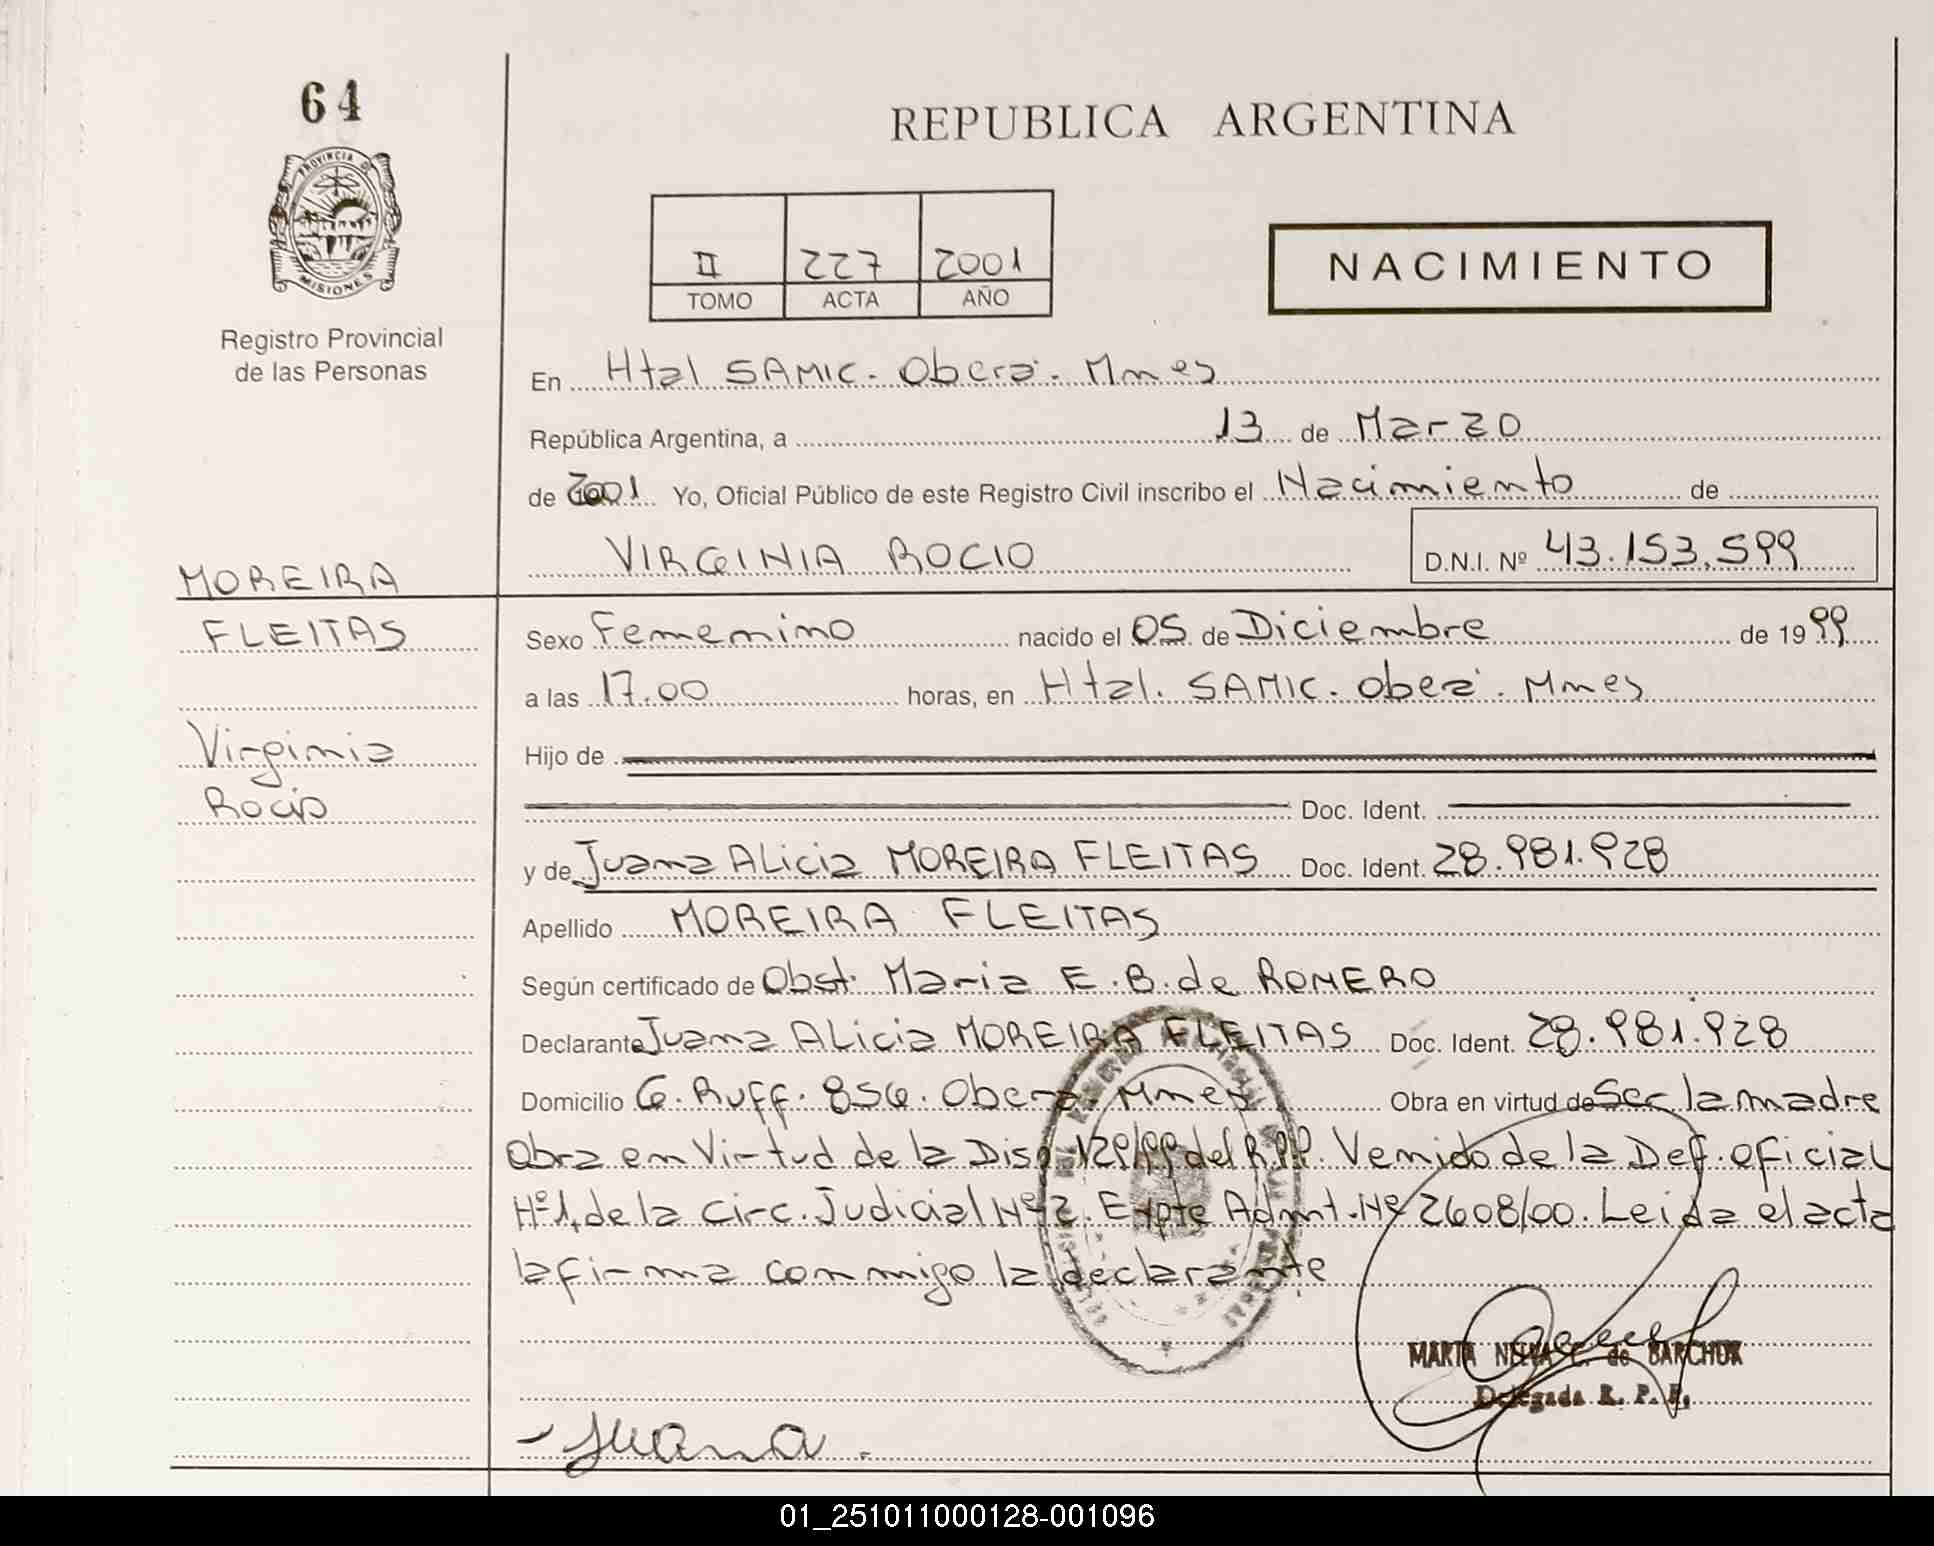 64
REPUBLICA ARGENTINA
PROVINCIA DE
MISIONES
II 227 2001
TOMO ACTA AÑO
NACIMIENTO
Registro Provincial
de las Personas
En Htal SAMIC. Oberá. Mnes
República Argentina, a 13 de Marzo
de 2001 Yo, Oficial Público de este Registro Civil inscribo el Nacimiento de
VIRGINIA ROCIO D.N.I. Nº 43.153.599
MOREIRA
FLEITAS
Virginia
Rocio
Sexo Femenino nacido el 05 de Diciembre de 1999
a las 17.00 horas, en Htal. SAMIC. Oberá. Mnes
Hijo de
Doc. Ident.
y de Juana ALicia MOREIRA FLEITAS Doc. Ident. 28.981.928
Apellido MOREIRA FLEITAS
Según certificado de Obst. Maria E.B. de ROMERO
Declarante Juana ALicia MOREIRA FLEITAS Doc. Ident. 28.981.928
Domicilio G. Ruff. 856. Oberá Mnes Obra en virtud de Ser la madre
Obra en Virtud de la Disp 129/99 del R.P.P. Venido de la Def. oficial
Nº1, de la Circ. Judicial Nº 2. Expte Admt. Nº 2608/00. Leida el acta
la firma conmigo la declarante
MARTA NELVA C. de BARCHUK
Delegada R. P. P.
Juana.
01_251011000128-001096